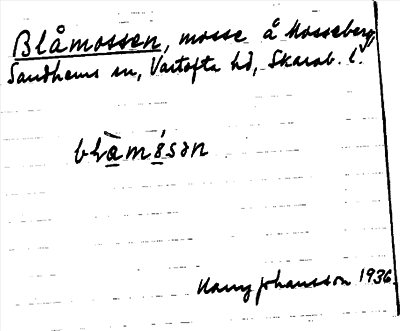 Blåmossen, mosse å Mosseberg,
Sandhems sn, Vartofta hd, Skarab. l.
blàmósən
Harry Johansson 1936.